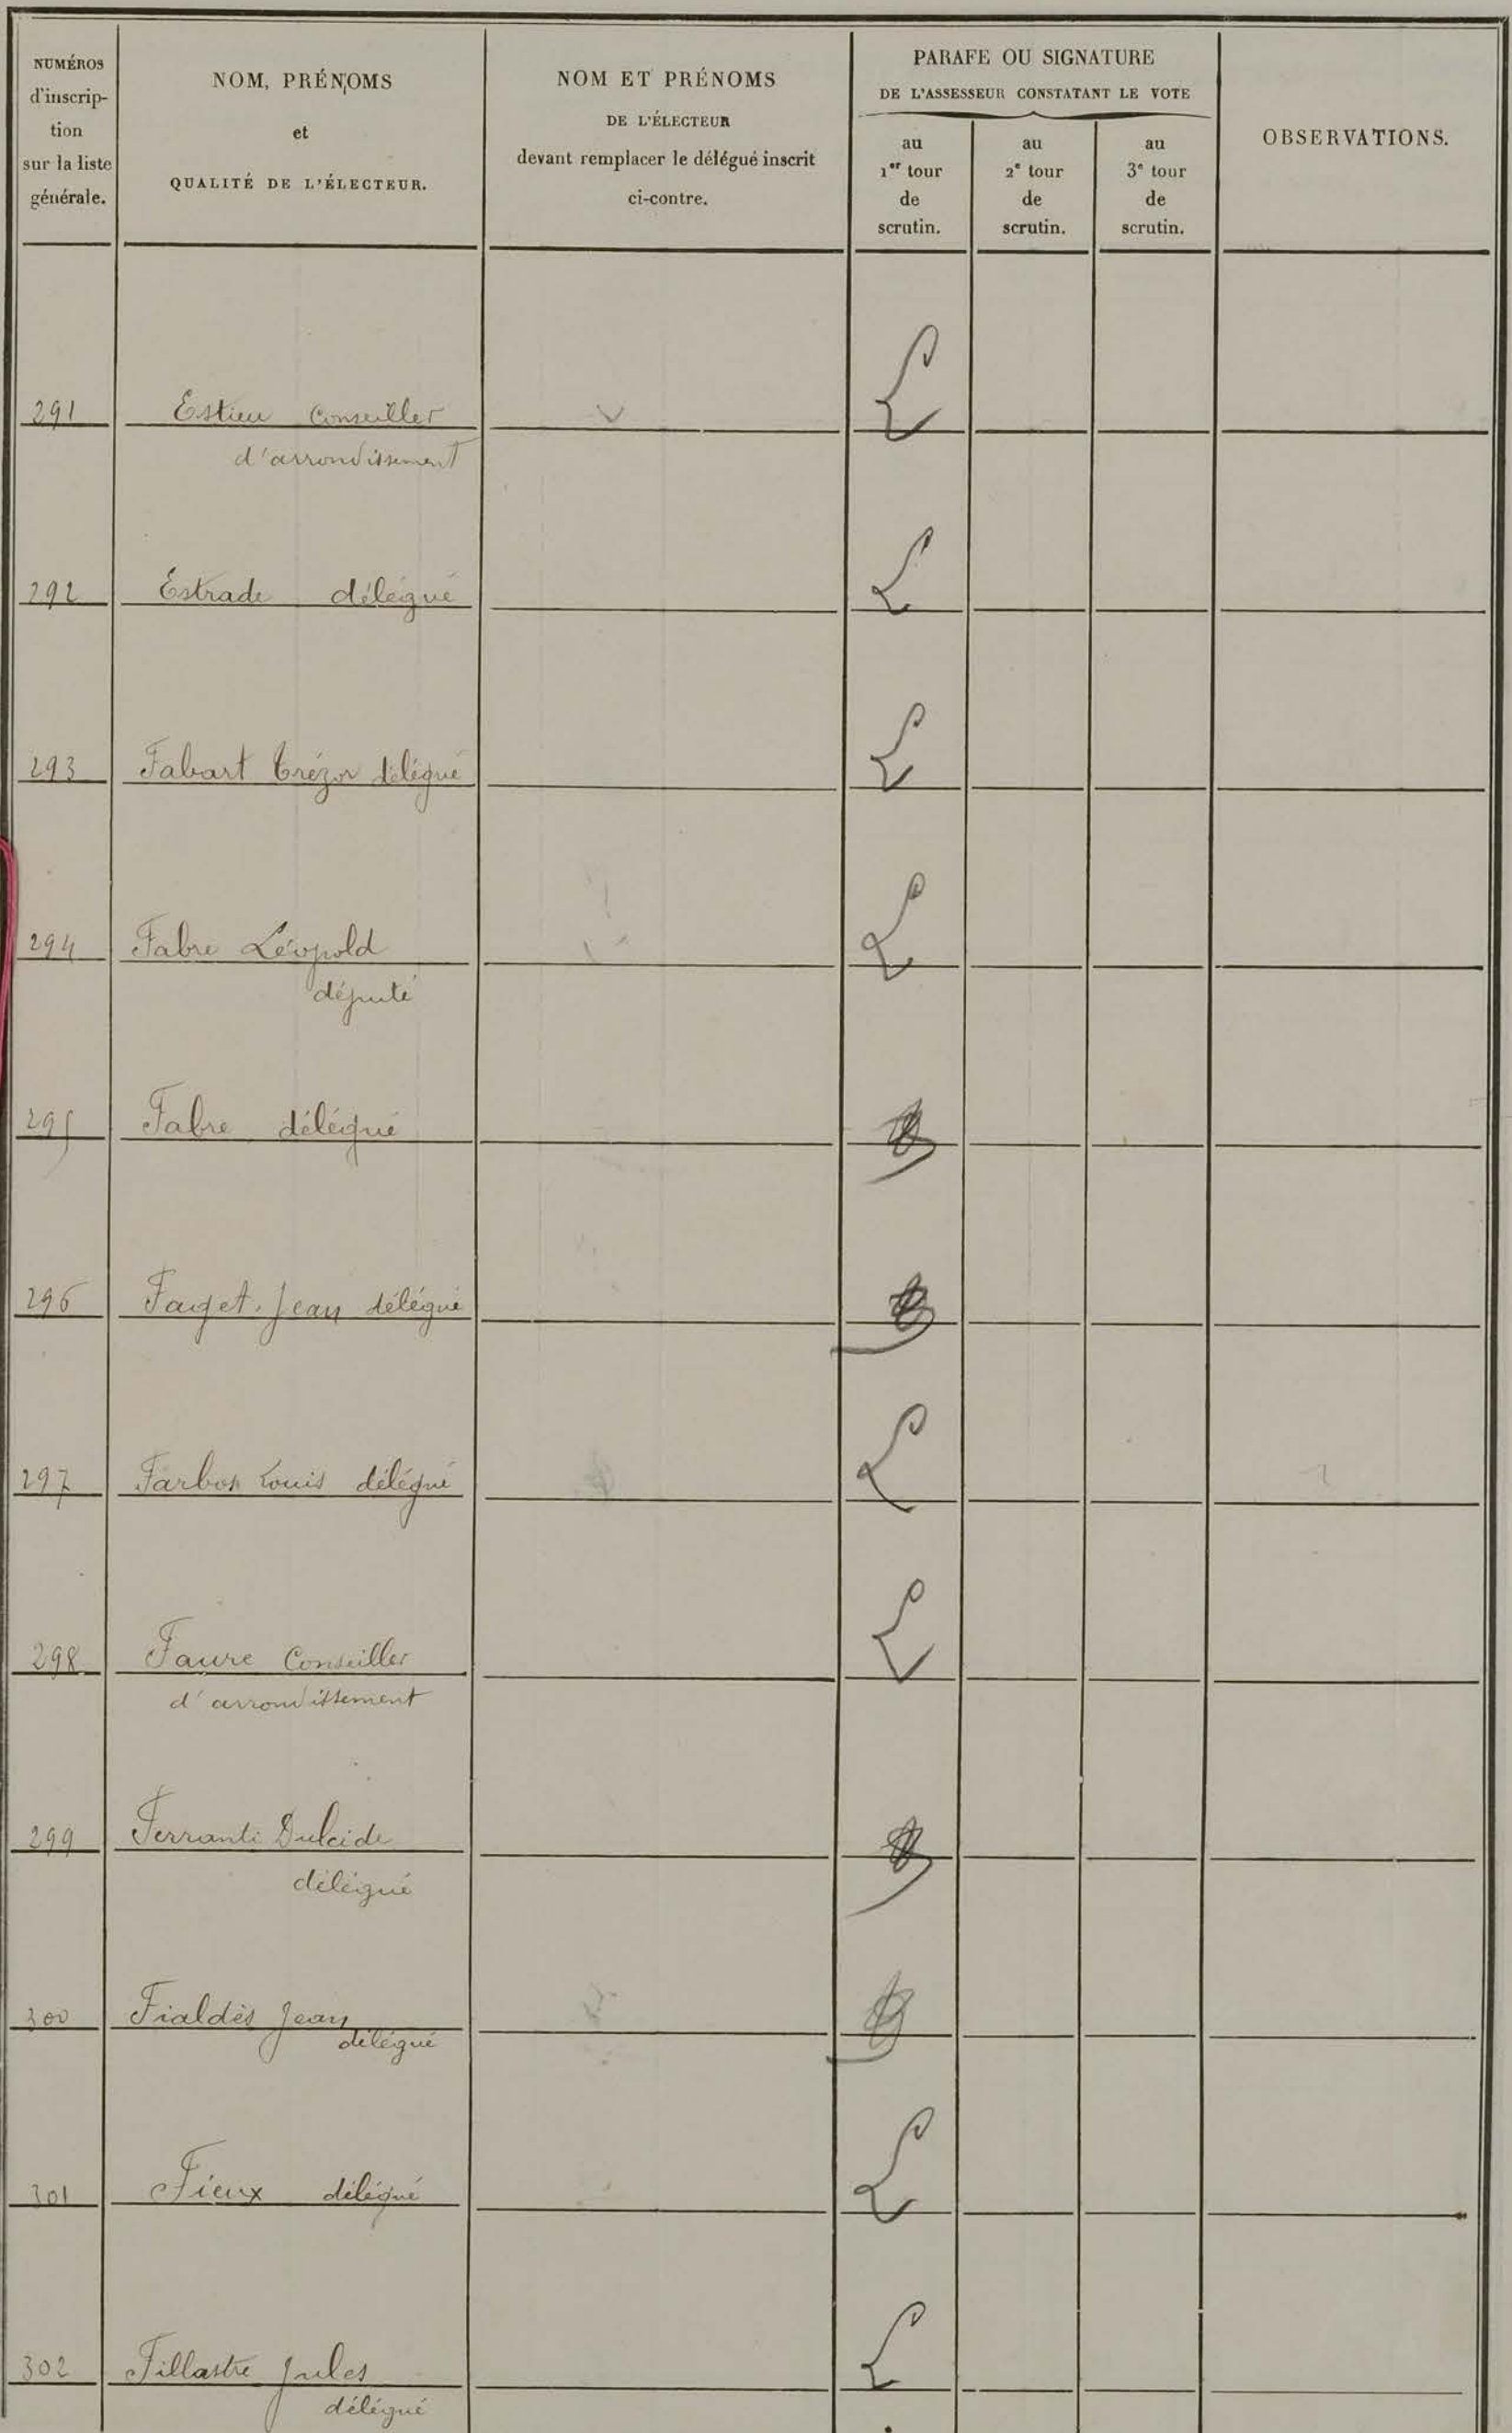 NUMÉROS
d'inscrip-
tion
sur la liste
générale.
NOM, PRÉNOMS
et
QUALITÉ DE L'ÉLECTEUR.
NOM ET PRÉNOMS
DE L'ÉLECTEUR
devant remplacer le délégué inscrit
ci-contre.
PARAFE OU SIGNATURE
DE L'ASSESSEUR CONSTATANT LE VOTE
au
1er tour
de
scrutin.
au
2e tour
de
scrutin.
au
3e tour
de
scrutin.
OBSERVATIONS.
291 Estieu Conseiller
d'arrondissement
292 Estrade délégué
293 Fabart Trézor délégué
294 Fabre Léopold
député
295 Fabre délégué
296 Faget Jean délégué
297 Farbos Louis délégué
298 Faure Conseiller
d'arrondissement
299 Ferranti Dulcide
délégué
300 Fialdès Jean
délégué
301 Fieux délégué
302 Fillastre Jules
délégué